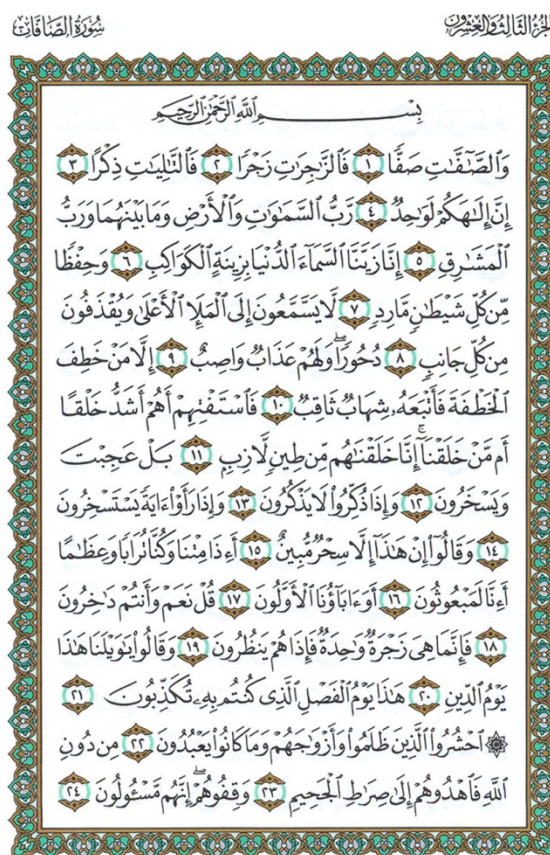 الجزء الثالث والعشرون
سورة الصافات
بِسْمِ ٱللَّهِ ٱلرَّحْمَٰنِ ٱلرَّحِيمِ
وَٱلصَّٰٓفَّٰتِ صَفًّا ١ فَٱلزَّٰجِرَٰتِ زَجْرًا ٢ فَٱلتَّٰلِيَٰتِ ذِكْرًا ٣
إِنَّ إِلَٰهَكُمْ لَوَٰحِدٌ ٤ رَّبُّ ٱلسَّمَٰوَٰتِ وَٱلْأَرْضِ وَمَا بَيْنَهُمَا وَرَبُّ
ٱلْمَشَٰرِقِ ٥ إِنَّا زَيَّنَّا ٱلسَّمَآءَ ٱلدُّنْيَا بِزِينَةٍ ٱلْكَوَاكِبِ ٦ وَحِفْظًا
مِّن كُلِّ شَيْطَٰنٍ مَّارِدٍ ٧ لَّا يَسَّمَّعُونَ إِلَى ٱلْمَلَإِ ٱلْأَعْلَىٰ وَيُقْذَفُونَ
مِن كُلِّ جَانِبٍ ٨ دُحُورًا ۖ وَلَهُمْ عَذَابٌ وَاصِبٌ ٩ إِلَّا مَنْ خَطِفَ
ٱلْخَطْفَةَ فَأَتْبَعَهُۥ شِهَابٌ ثَاقِبٌ ١٠ فَٱسْتَفْتِهِمْ أَهُمْ أَشَدُّ خَلْقًا
أَم مَّنْ خَلَقْنَآ ۚ إِنَّا خَلَقْنَٰهُم مِّن طِينٍ لَّازِبٍ ١١ بَلْ عَجِبْتَ
وَيَسْخَرُونَ ١٢ وَإِذَا ذُكِّرُوا۟ لَا يَذْكُرُونَ ١٣ وَإِذَا رَأَوْا۟ ءَايَةً يَسْتَسْخِرُونَ
١٤ وَقَالُوٓا۟ إِنْ هَٰذَآ إِلَّا سِحْرٌ مُّبِينٌ ١٥ أَءِذَا مِتْنَا وَكُنَّا تُرَابًا وَعِظَٰمًا
أَءِنَّا لَمَبْعُوثُونَ ١٦ أَوَءَابَآؤُنَا ٱلْأَوَّلُونَ ١٧ قُلْ نَعَمْ وَأَنتُمْ دَٰخِرُونَ
١٨ فَإِنَّمَا هِىَ زَجْرَةٌ وَٰحِدَةٌ فَإِذَا هُمْ يَنظُرُونَ ١٩ وَقَالُوا۟ يَٰوَيْلَنَا هَٰذَا
يَوْمُ ٱلدِّينِ ٢٠ هَٰذَا يَوْمُ ٱلْفَصْلِ ٱلَّذِى كُنتُم بِهِۦ تُكَذِّبُونَ ٢١
۞ ٱحْشُرُوا۟ ٱلَّذِينَ ظَلَمُوا۟ وَأَزْوَٰجَهُمْ وَمَا كَانُوا۟ يَعْبُدُونَ ٢٢ مِن دُونِ
ٱللَّهِ فَٱهْدُوهُمْ إِلَىٰ صِرَٰطِ ٱلْجَحِيمِ ٢٣ وَقِفُوهُمْ ۖ إِنَّهُم مَّسْـُٔولُونَ ٢٤